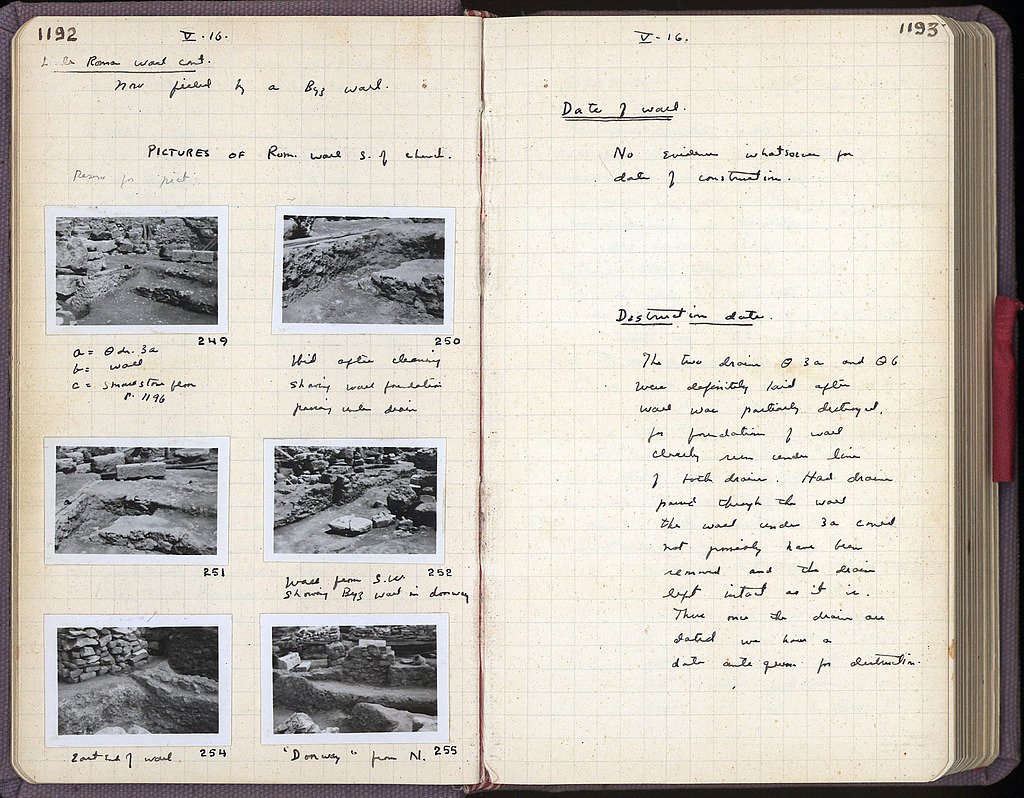 1192
V-16.
Roman wall cont.
Now pierced by a Byz wall.
PICTURES OF Rom. wall S. of church.
Reserve for pict.
249
a = θ dr. 3a
b = wall
c = small stone from
P. 1196
250
Ibid after cleaning
showing wall foundation
passing under drain
251
252
Wall from S.W.
showing Byz wall in doorway
254
East end of wall
255
"Doorway" from N.
1193
V-16.
Date of wall.
No evidence whatsoever for
date of construction.
Destruction date.
The two drains θ 3a and θ6
were definitely laid after
wall was partially destroyed,
for foundations of wall
clearly run under line
of both drains. Had drains
passed through the wall
the wall under 3a could
not possibly have been
removed and the drain
left intact as it is.
Thus once the drains are
dated we have a
date ante quem for destruction.